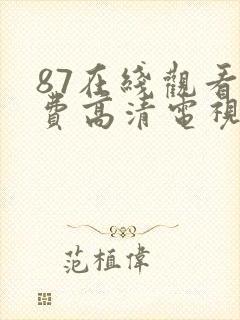 87在綫觀看
費高清電視
范植偉